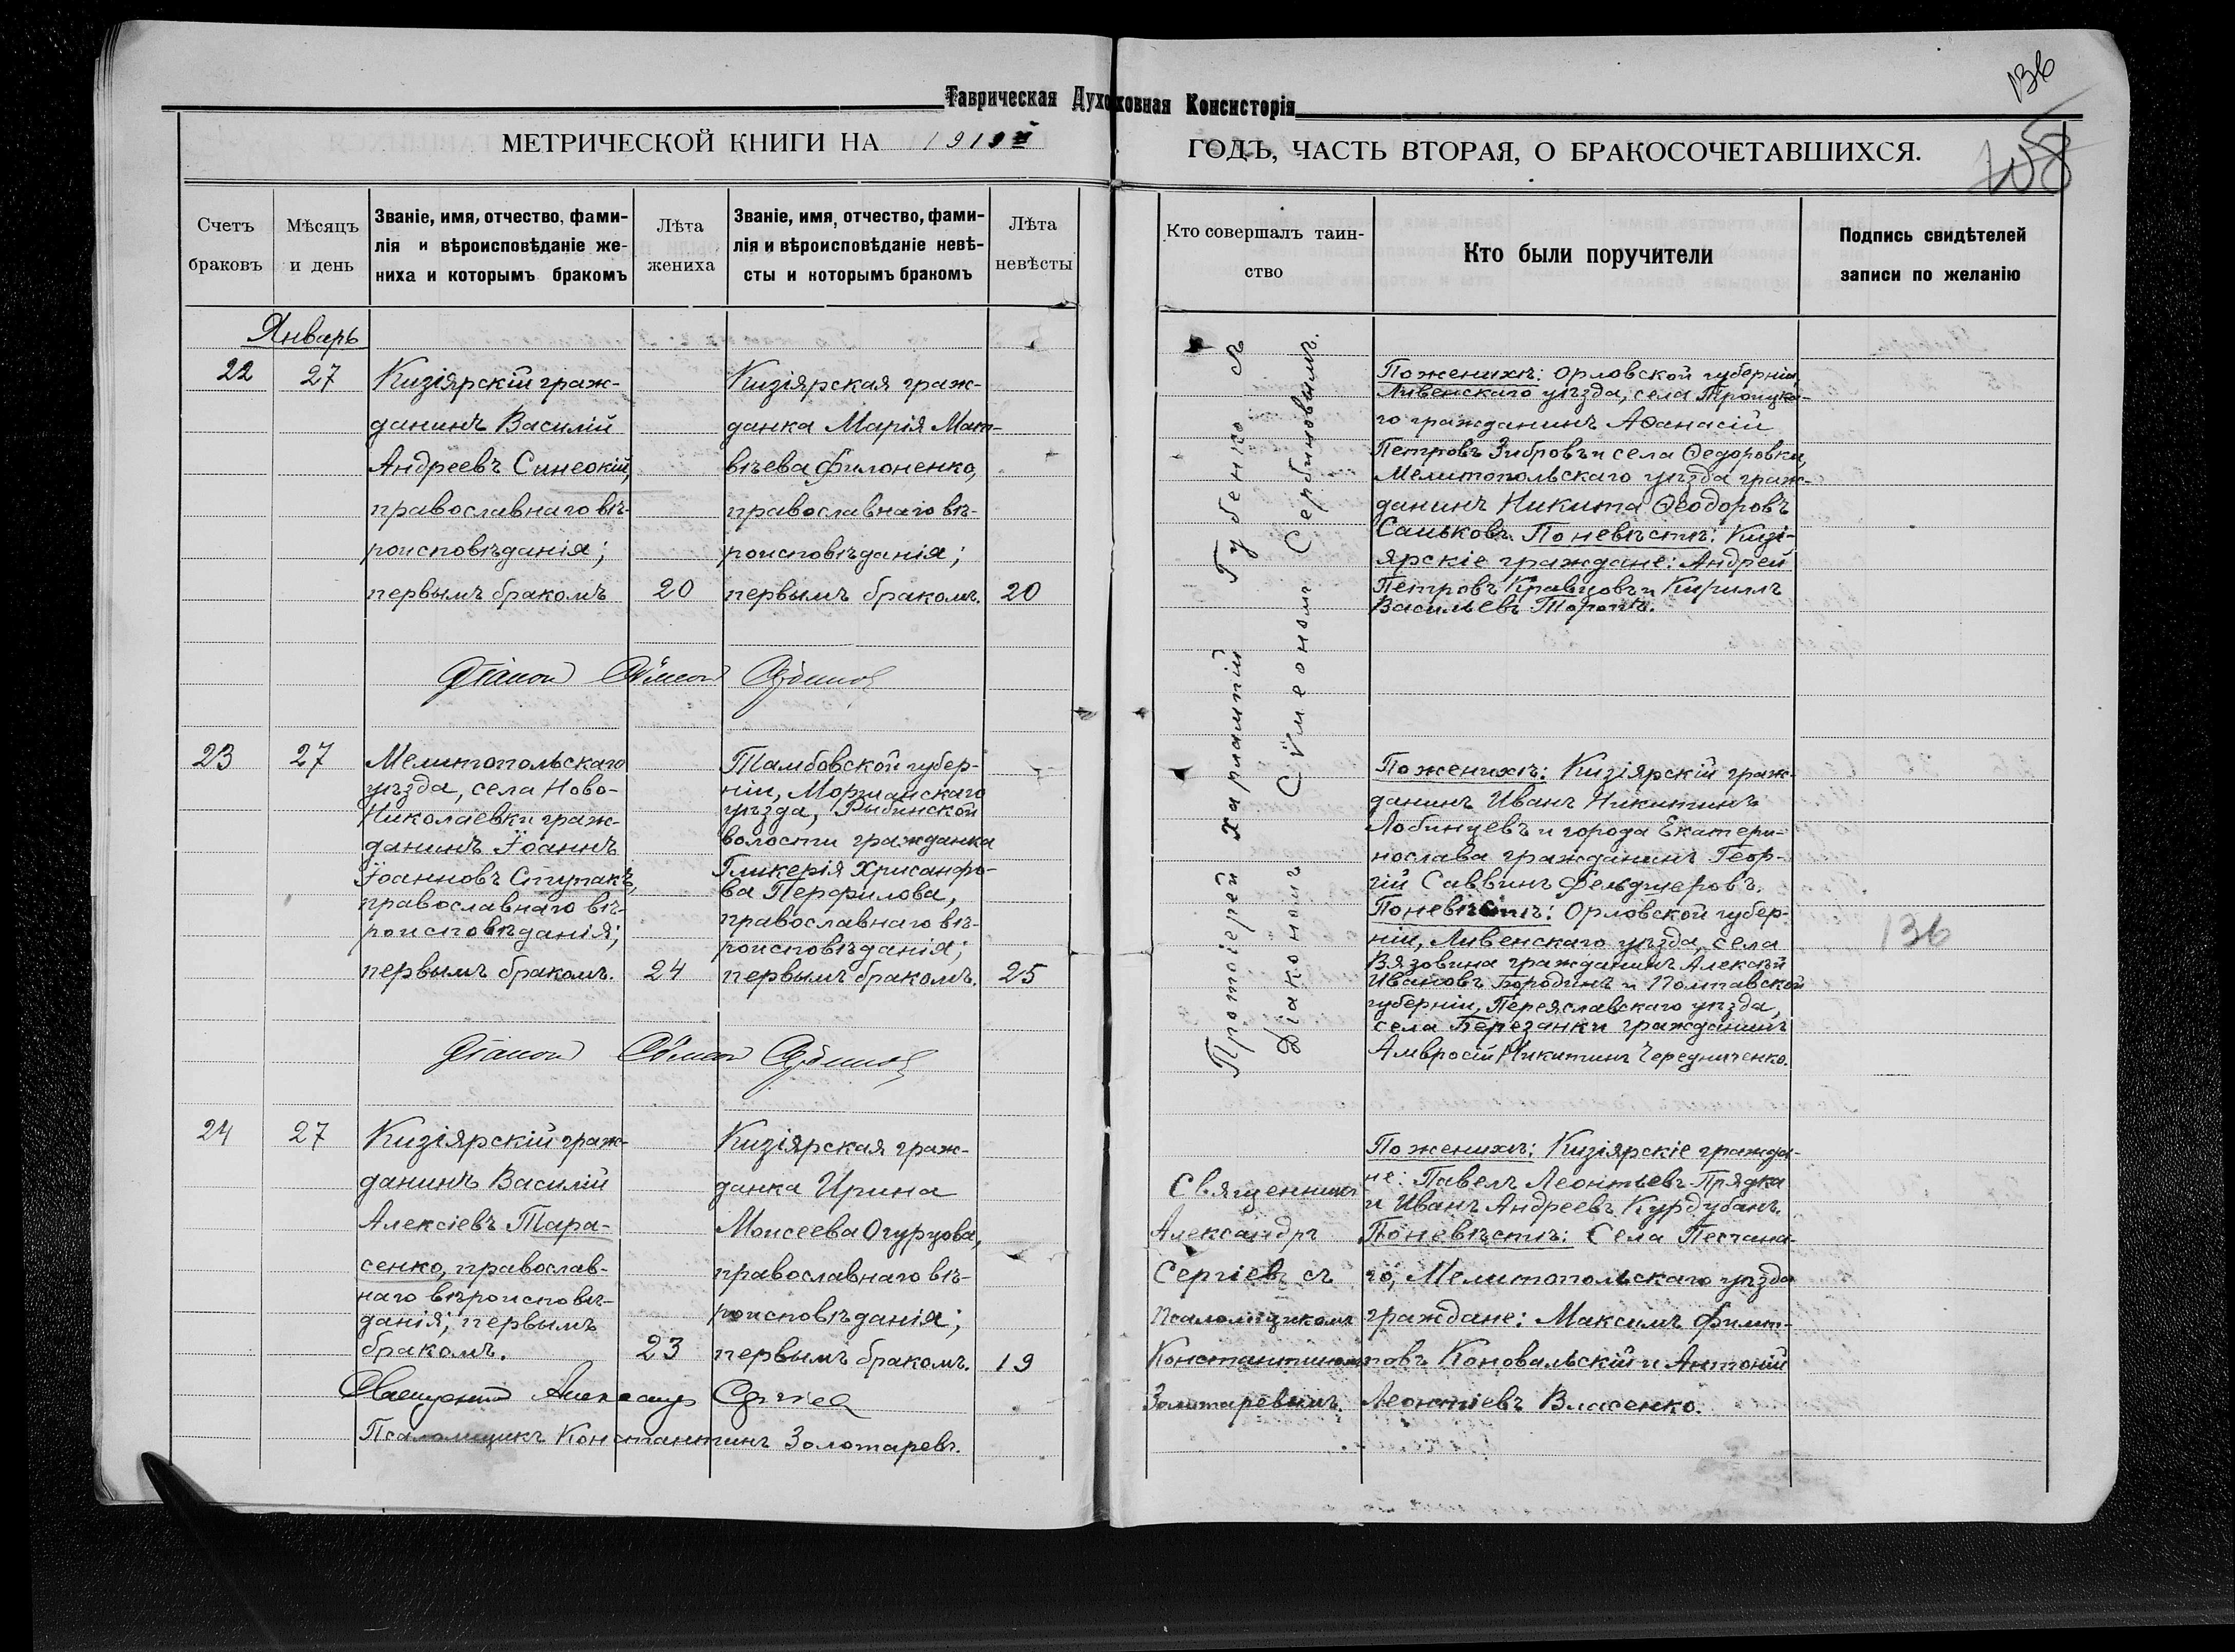 136
Таврическая Духовная Консисторія
МЕТРИЧЕСКОЙ КНИГИ НА 1919й ГОДЪ, ЧАСТЬ ВТОРАЯ, О БРАКОСОЧЕТАВШИХСЯ.
Счетъ браковъ
Мѣсяцъ и день
Званіе, имя, отчество, фами-
лія и вѣроисповѣданіе же-
ниха и которымъ бракомъ
Лѣта жениха
Званіе, имя, отчество, фами-
лія и вѣроисповѣданіе невѣ-
сты и которымъ бракомъ
Лѣта невѣсты
Кто совершалъ таин-
ство
Кто были поручители
Подпись свидѣтелей
записи по желанію
Январь
22
27
Кизіярскій граж-
данинъ Василій
Андреевъ Синеокій,
православнаго вѣ-
роисповѣданія;
первымъ бракомъ
20
Кизіярская граж-
данка Марія Мат-
вѣева Филоненко,
православнаго вѣ-
роисповѣданія;
первымъ бракомъ.
20
Протоіерей Харлампій Губенко съ
Діакономъ Сѵмеономъ Сербиновымъ.
По женихѣ: Орловской губерніи,
Ливенскаго уѣзда, села Троицка-
го гражданинъ Аѳанасій
Петровъ Зибровъ и села Ѳедоровки,
Мелитопольскаго уѣзда граж-
данинъ Никита Ѳеодоровъ
Саньковъ. По невѣстѣ: Кизі-
ярскіе граждане: Андрей
Петровъ Кравцовъ и Кириллъ
Васильевъ Торопъ.
Діаконъ Сѵмеонъ Сербиновъ
23
27
Мелитопольскаго
уѣзда, села Ново-
Николаевки граж-
данинъ Іоаннъ
Іоанновъ Ступакъ,
православнаго вѣ-
роисповѣданія;
первымъ бракомъ.
24
Тамбовской губер-
ніи, Моршанскаго
уѣзда, Рыбинской
волости гражданка
Гликерія Хрисанфо-
ва Перфилова,
православнаго вѣ-
роисповѣданія;
первымъ бракомъ.
25
По женихѣ: Кизіярскій граж-
данинъ Иванъ Никитинъ
Лобинцевъ и города Екатери-
нослава гражданинъ Геор-
гій Саввинъ Фельдшеровъ.
По невѣстѣ: Орловской губер-
ніи, Ливенскаго уѣзда, села
Вязовина гражданинъ Алексѣй
Ивановъ Бородинъ и Полтавской
губерніи, Переяславскаго уѣзда,
села Березанки гражданинъ
Амвросій Никитинъ Чередниченко.
136
Діаконъ Сѵмеонъ Сербиновъ
24
27
Кизіярскій граж-
данинъ Василій
Алексіевъ Тара-
сенко, православ-
наго вѣроисповѣ-
данія; первымъ
бракомъ.
23
Кизіярская граж-
данка Ирина
Моисеева Огурцова,
православнаго вѣ-
роисповѣданія;
первымъ бракомъ.
19
Священникъ
Александръ
Сергіевъ съ
Псаломщикомъ
Константиномъ
Золотаревымъ.
По женихѣ: Кизіярскіе гражда-
не: Павелъ Леонтьевъ Прядка
и Иванъ Андреевъ Курдубанъ.
По невѣстѣ: Села Песчана-
го, Мелитопольскаго уѣзда
граждане: Максимъ Филип-
повъ Коновальскій и Антоній
Леонтіевъ Власенко.
Священникъ Александръ Сергіевъ
Псаломщикъ Константинъ Золотаревъ.